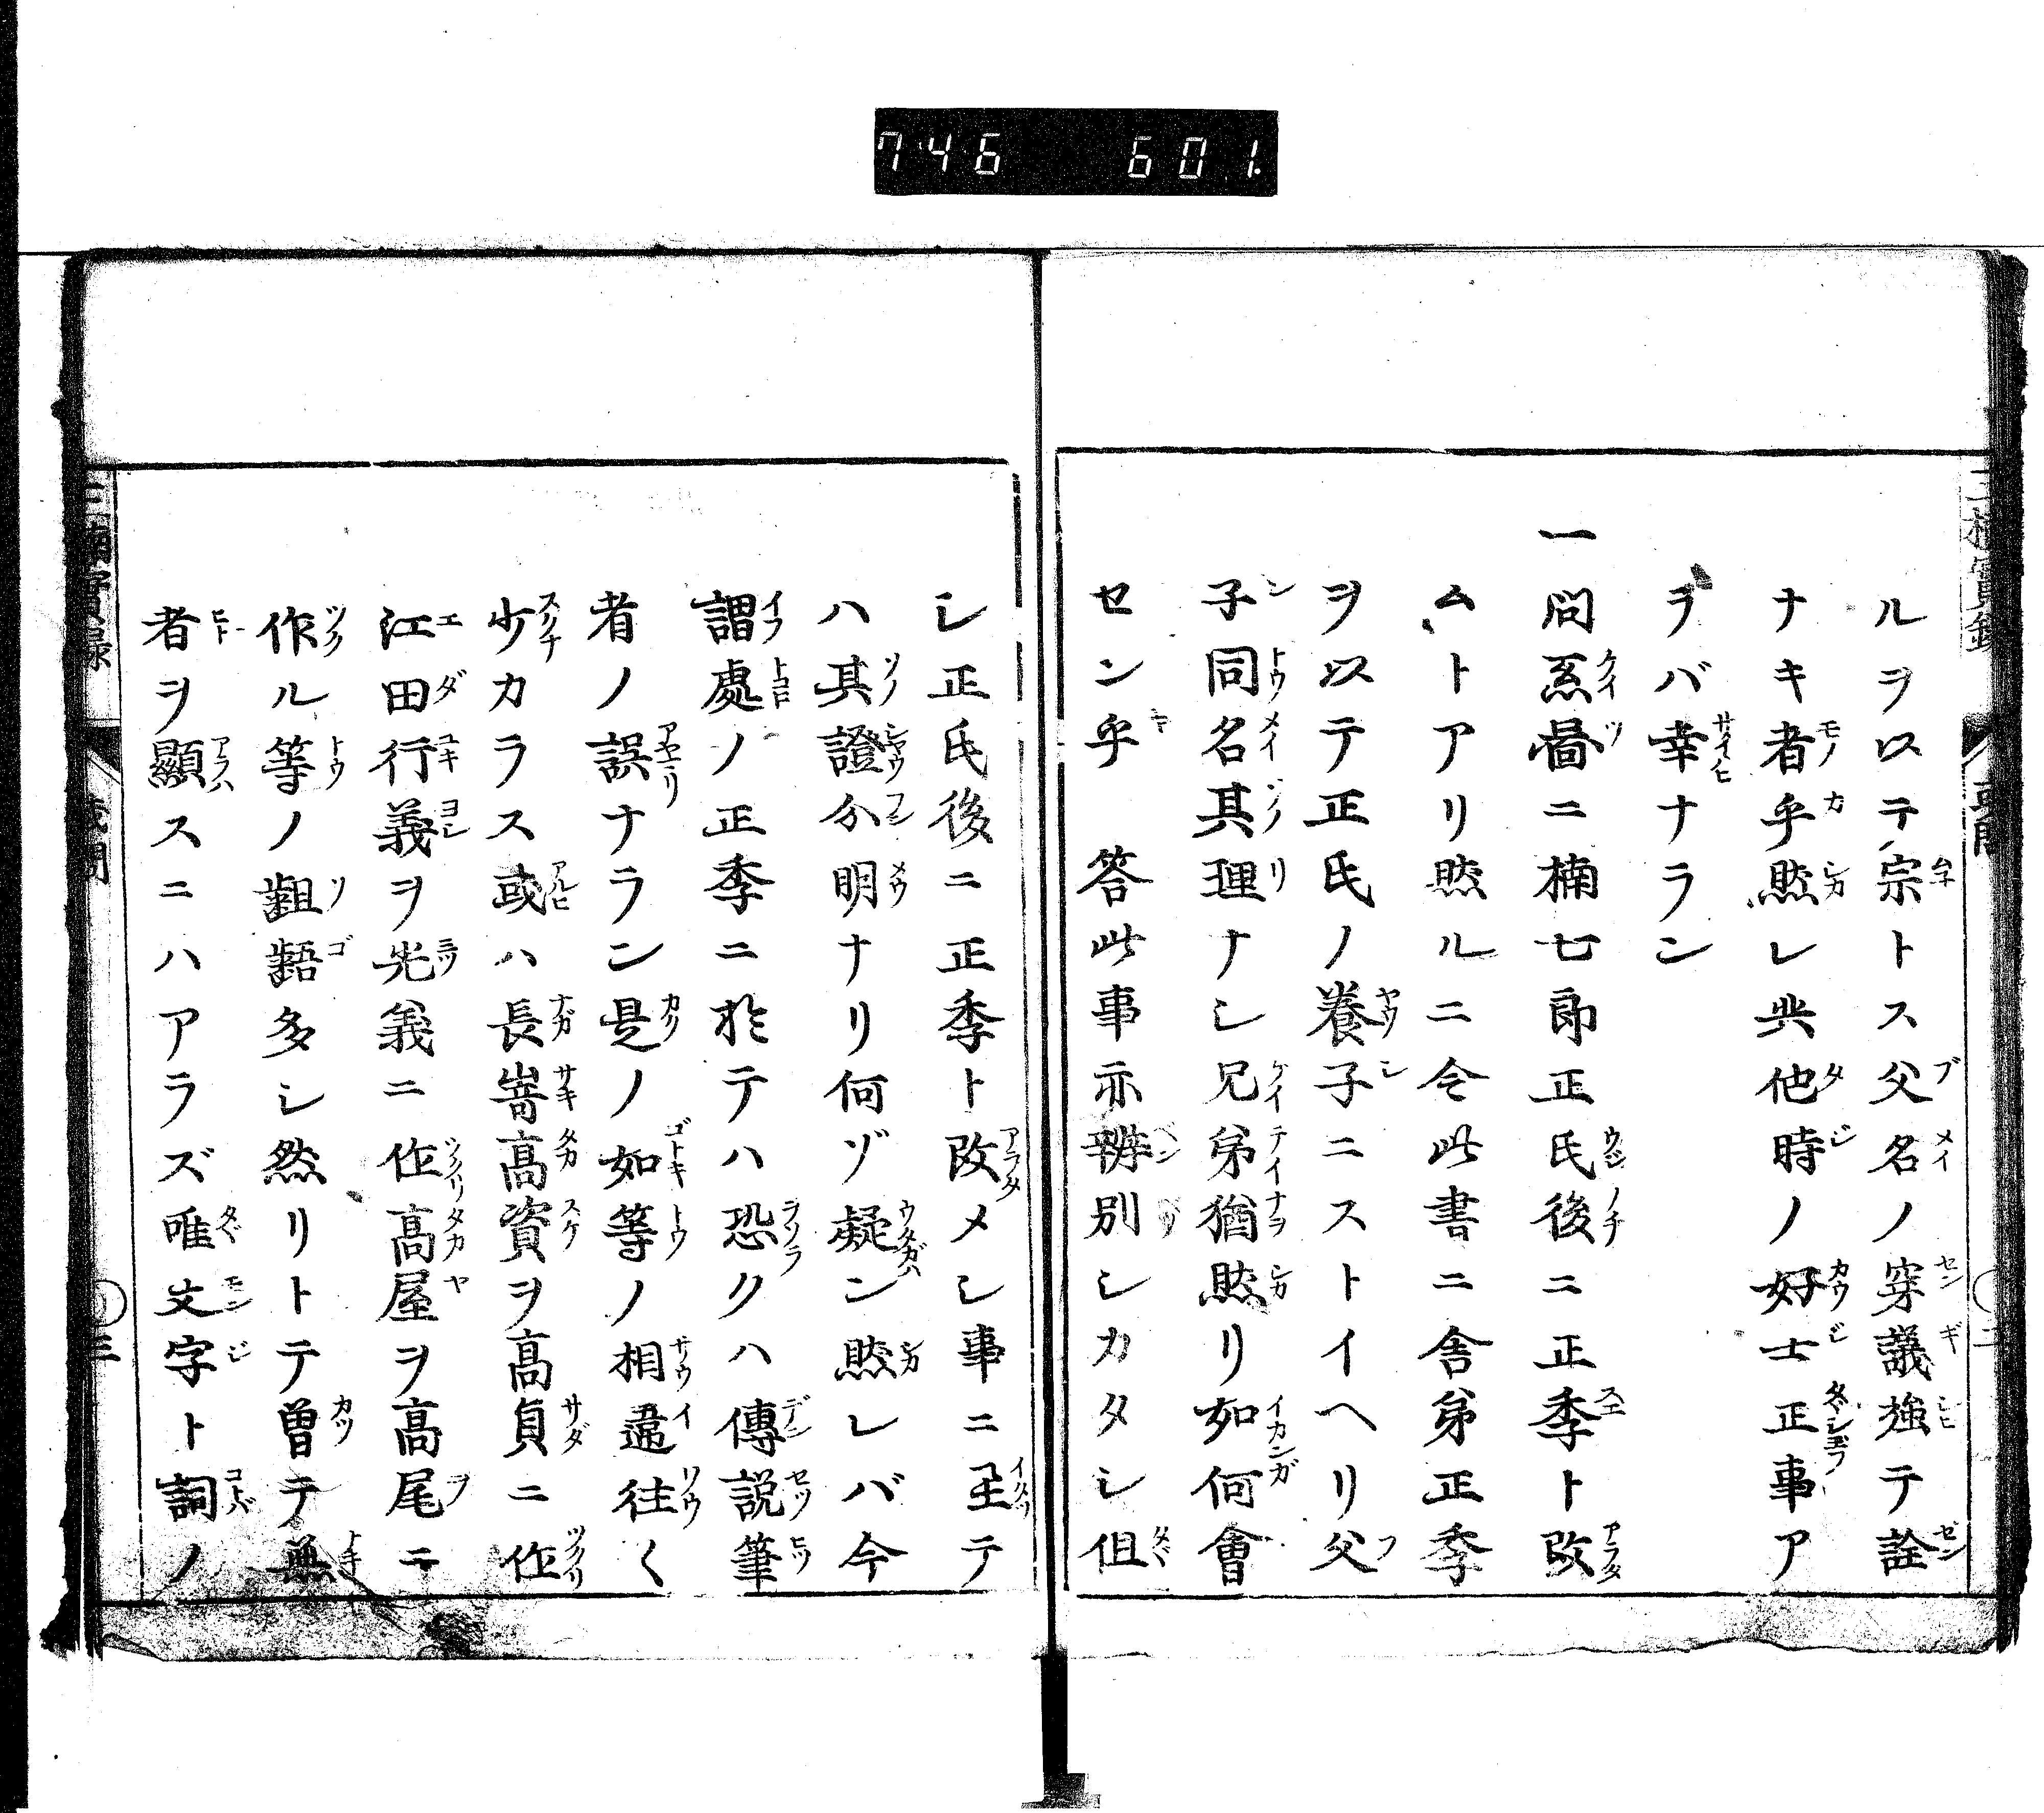 746 601
ルヲ以テ宗トス父名ノ穿議強テ詮
ナキ者乎然レ共他時ノ好士正事ア
ラバ幸ナラン
一問系圖ニ楠七郎正氏後ニ正季ト改
ムトアリ然ルニ今此書ニ舎弟正季
ヲ以テ正氏ノ養子ニストイヘリ父
子同名其理ナシ兄弟猶然リ如何會
セン乎 答此事亦辨別シカタシ但
シ正氏後ニ正季ト改メシ事ニ至テ
ハ其證分明ナリ何ゾ疑ン然レバ今
謂處ノ正季ニ於テハ恐クハ傳説筆
者ノ誤ナラン是ノ如等ノ相違往〱
少カラス或ハ長嵜高資ヲ高貞ニ作
江田行義ヲ光義ニ作高屋ヲ高尾ニ
作ル等ノ齟齬多シ然リトテ曽テ無
者ヲ顯スニハアラズ唯文字ト詞ノ
三楠實録 或問 三